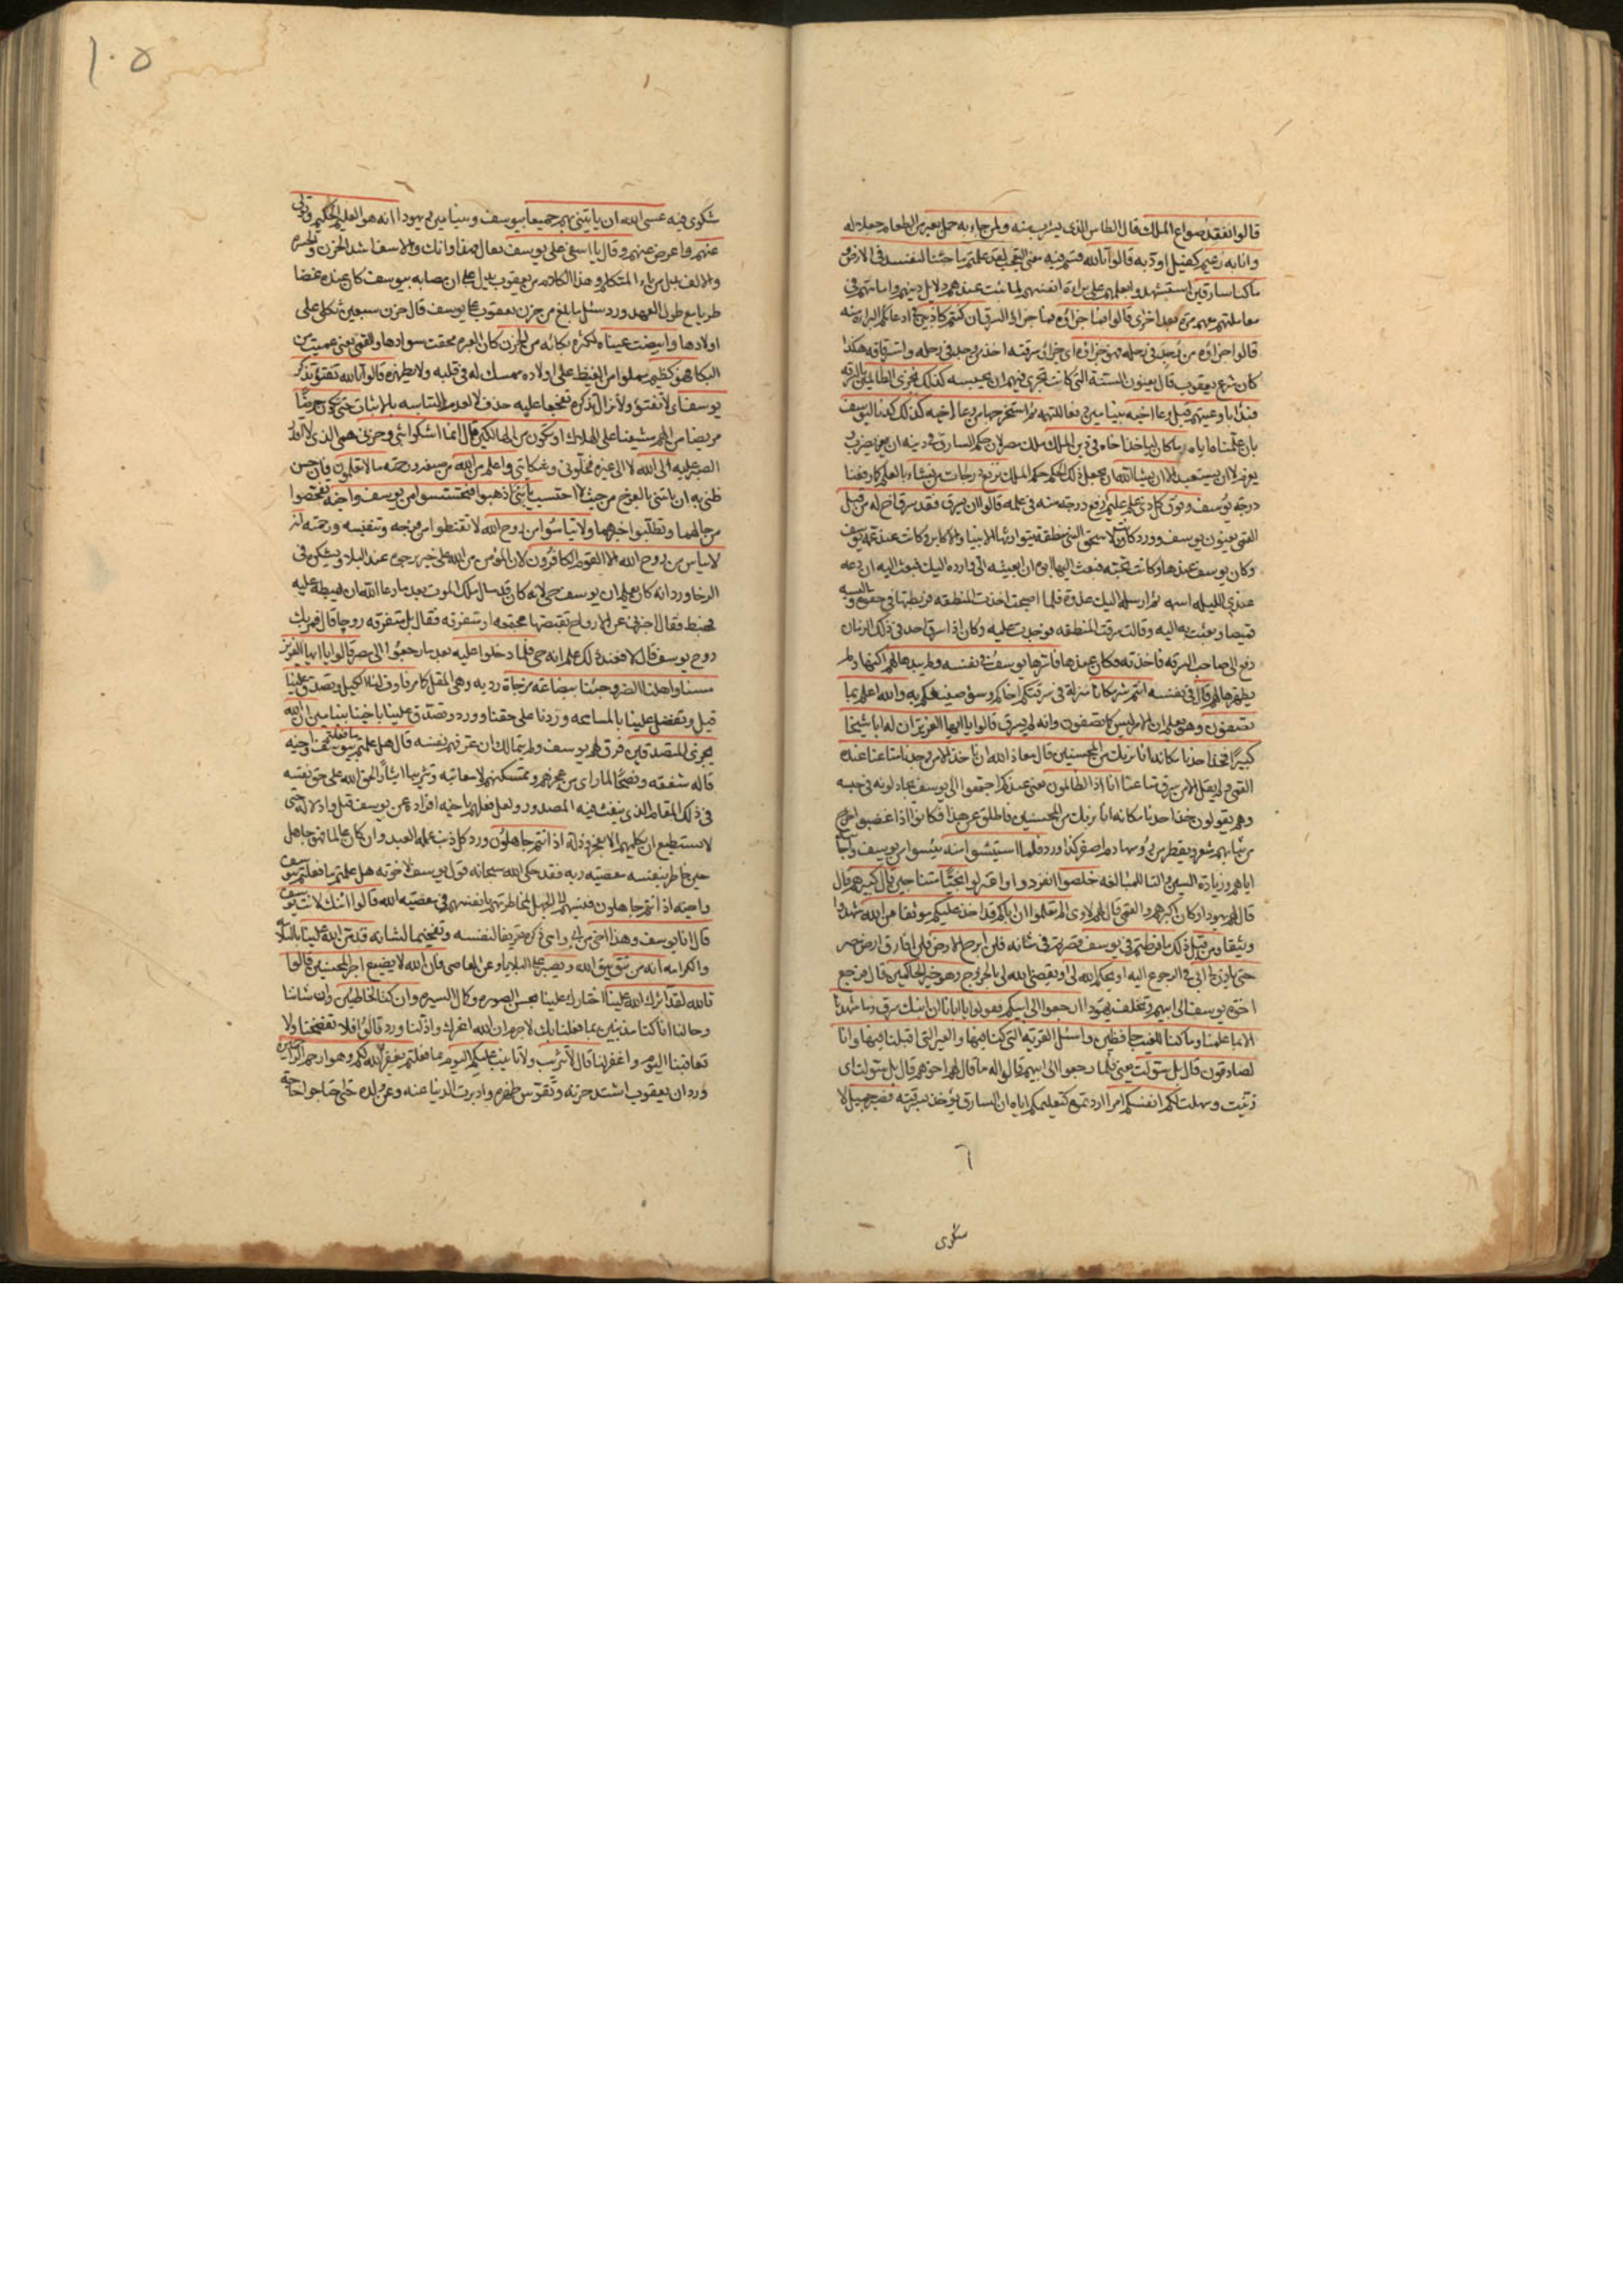 قالوا نفقد صواع الملك قال الطاس الذى يشرب منه ولمن جاء به حمل بعير من الطعام جعلا له
وانا به زعيم كفيل اوديه قالوا تالله قسم فيه معنى التعجب لقد علمتم ما جئنا لنفسد فى الارض و
ما كنا سارقين استشهدوا بعلمهم على براءة انفسهم لما ثبت عندهم دلايل دينهم وامانتهم فى
معاملتهم معهم مرة بعد اخرى قالوا فما جزاؤه فما جزاء السرق ان كنتم كاذبين فى ادعائكم البراءة منه
قالوا جزاؤه من وجد فى رحله فهو جزاؤه اى جزاء سرقته اخذ من وجد فى رحله واسترقاقه هكذا
كان شرع يعقوب قال يعنون السنة التى كانت تجرى فيهم ان يحبسه كذلك نجزى الظالمين بالسرقة
فبدا باوعيتهم قبل وعاء اخيه بنيامين نفيا للتهمة ثم استخرجها من وعاء اخيه كذلك كدنا ليوسف
بان علمناه اياه ما كان لياخذ اخاه فى دين الملك ملك مصر لان حكم السارق فى دينه ان يضرب و
يغرم لا ان يستعبد الا ان يشاء الله ان يجعل ذلك الحكم حكم الملك نرفع درجات من نشاء بالعلم كما رفعنا
درجة يوسف وفوق كل ذى علم عليم ارفع درجة منه فى علمه قالوا ان يسرق فقد سرق اخ له من قبل
القمى يعنون يوسف وورد كانت لاسحق النبى منطقة يتوارثها الانبيا والاكابر وكانت عند عمة يوسف
وكان يوسف عندها وكانت تحبه فبعث اليها ابوه ان ابعثيه الى وارده اليك فبعثت اليه ان دعه
عندى الليلة اشمه ثم ارسله اليك غدوة فلما اصبحت اخذت المنطقة فربطتها فى حقوه والبسته
قميصا وبعثت به اليه وقالت سرقت المنطقة فوجدت عليه وكان اذا سرق احد فى ذلك الزمان
دفع الى صاحب السرقة فاخذته فكان عندها فاسرها يوسف فى نفسه ولم يبدها لهم اكنها ولم
يظهرها لهم قال فى نفسه انتم شر مكانا منزلة فى سرقتكم اخاكم وسوء صنيعكم به والله اعلم بما
تصفون وهو يعلم ان الامر ليس كما تصفون وانه لم يسرق قالوا يا ايها العزيز ان له ابا شيخا
كبيرا فخذ احدنا مكانه انا نريك من المحسنين قال معاذ الله ان ناخذ الا من وجدنا متاعنا عنده
القمى ولم يقل الا من سرق متاعنا انا اذا لظالمون يعنى عندكم اجتمعوا الى يوسف يجادلونه فى حبسه
وهم يقولون خذ احدنا مكانه انا نريك من المحسنين فاطلق عن هذا فكانوا اذا غضبوا خرج
من ثيابهم شعر ويقطر من رؤسها دم اصفر كذا ورد فلما استيئسوا منه يئسوا من يوسف واجابته
اياهم وزيادة السين والتا للمبالغه خلصوا انفردوا واعتزلوا نجيا متناجين قال كبيرهم قال
قال لهم يهودا وكان اكبرهم والقمى قال لهم لاوى الم تعلموا ان اباكم قد اخذ عليكم موثقا من الله عهدا
وثيقا ومن قبل ذلك ما فرطتم فى يوسف قصرتم فى شانه فلن ابرح الارض فلن افارق ارض مصر
حتى ياذن لى ابى فى الرجوع اليه او يحكم الله لى او يقضى الله لى بالخروج وهو خير الحاكمين قال فرجع
اخوة يوسف الى ابيهم وتخلف يهودا ارجعوا الى ابيكم فقولوا يا ابانا ان ابنك سرق وما شهدنا
الا بما علمنا وما كنا للغيب حافظين واسئل القرية التى كنا فيها والعير التى اقبلنا فيها وانا
لصادقون قال بل سولت يعنى فلما رجعوا الى ابيهم قالوا له ما قال لهم اخوهم قال بل سولت اى
زينت وسهلت لكم انفسكم امرا اردتموه كتعليمكم اياه ان السارق يؤخذ بسرقته فصبر جميل لا
شكوى
شكوى فيه عسى الله ان ياتينى بهم جميعا بيوسف وبنيامين ويهودا انه هو العليم الحكيم وتولى
عنهم واعرض عنهم وقال يا اسفى على يوسف تعال فهذا اوانك والاسف اشد الحزن والحسرة
والالف بدل من ياء المتكلم وهذا الكلام من يعقوب يدل على ان مصابه بيوسف كان عنده غضا
طريا مع طول العهد وورد سئل ما بلغ من حزن يعقوب على يوسف قال حزن سبعين ثكلى على
اولادها وابيضت عيناه لكثرة بكائه من الحزن كان العبرة محقت سوادها والقمى يعنى عميت من
البكا فهو كظيم مملو من الغيظ على اولاده ممسك له فى قلبه ولا يظهره قالوا تالله تفتؤ تذكر
يوسف اى لا تفتؤ ولا تزال تذكره تفجعا عليه حذف لا لعدم التباسه بالاثبات حتى تكون حرضا
مريضا من الهم مشيفا على الهلاك او تكون من الهالكين قال انما اشكوا بثى وحزنى همى الذى لا اقدر
الصبر عليه الى الله لا الى غيره فخلونى وشكايتى واعلم من الله من صنعه ورحمته ما لا تعلمون فان حسن
ظنى به ان ياتينى بالفرج من حيث لا احتسب يا بنى اذهبوا فتحسسوا من يوسف واخيه تفحصوا
من حالهما وتطلبوا خبرهما ولا تياسوا من روح الله لا تقنطوا من فرجه وتنفيسه ورحمته انه
لا يياس من روح الله الا القوم الكافرون لان المؤمن من الله على خير يرجوه عند البلاء ويشكره فى
الرخا ورد انه كان يعلم ان يوسف حى لانه كان قد سال ملك الموت بعد ما دعا الله ان يهبطه عليه
فهبط فقال اخبرنى عن الارواح تقبضها مجتمعة او متفرقة فقال بل متفرقة روحا قال فمر بك
روح يوسف قال لا فعند ذلك علم انه حى فلما دخلوا عليه بعد ما رجعوا الى مصر قالوا يا ايها العزيز
مسنا واهلنا الضر وجئنا ببضاعة مزجاة رديه وهى المقل كما مر فاوف لنا الكيل وتصدق علينا
قيل وتفضل علينا بالمسامحه وزدنا على حقنا وورد وتصدق علينا باخينا بنيامين ان الله
يجزى المتصدقين فرق لهم يوسف ولم يتمالك ان عرفهم نفسه قال هل علمتم ما فعلتم بيوسف واخيه
قاله شفقة ونصحا لما راى من عجزهم وتمسكنهم لا معاتبة وتثريبا ايثارا لحق الله على حق نفسه
فى ذلك المقام الذى ينفث فيه المصدور ولعل فعلهم باخيه افراده عن يوسف قيل واذلاله حتى
لا يستطيع ان يكلمهم الا بعجز وذلة اذ انتم جاهلون ورد كل ذنب عمله العبد وان كان عالما فهو جاهل
حين خاطر بنفسه معصيته ربه فقد حكى الله سبحانه قول يوسف لاخوته هل علمتم ما فعلتم بيوسف
واخيه اذ انتم جاهلون فنسبهم الى الجهل لمخاطرتهم بانفسهم فى معصيه الله قالوا ائنك لانت يوسف
قال انا يوسف وهذا اخى من ابى وامى ذكره تعريفا لنفسه وتفخيما لشانه قد من الله علينا بالسلامة
والكرامه انه من يتق يتق الله ويصبر على البلايا وعن المعاصى فان الله لا يضيع اجر المحسنين قالوا
تالله لقد اثرك الله علينا اختارك علينا بحسن الصوره وكمال السيره وان كنا لخاطئين وان شاننا
وحالنا انا كنا مذنبين بما فعلنا بك لا جرم ان الله اعزك واذلنا وورد قالوا فلا تفضحنا ولا
تعاقبنا اليوم واغفر لنا قال لا تثريب ولا تانيب عليكم اليوم بما فعلتم يغفر الله لكم وهو ارحم الراحمين
ورد ان يعقوب اشتد حزنه وتقوس ظهره وادبرت الدنيا عنه وعن ولده حتى احتاجوا حاجة
١٠٥